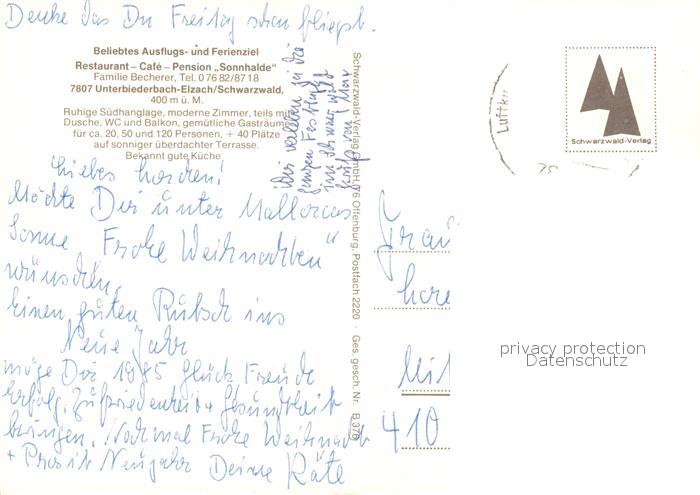 Denke das Du Freitag schon fliegst.
Beliebtes Ausflugs- und Ferienziel
Restaurant – Café – Pension „Sonnhalde"
Familie Becherer, Tel. 0 76 82/87 18
7807 Unterbiederbach-Elzach/Schwarzwald,
400 m ü. M.
Ruhige Südhanglage, moderne Zimmer, teils mit
Dusche, WC und Balkon, gemütliche Gasträume
für ca. 20, 50 und 120 Personen, + 40 Plätze
auf sonniger überdachter Terrasse.
Bekannt gute Küche
Liebes
Möchte Dir unter Mallorcas
Sonne „Frohe Weihnachten"
wünschen.
Einen guten Rutsch ins
Neue Jahr
möge Dir 1985 Glück Freude
Erfolg, Zufriedenheit + Gesundheit
bringen. Nochmal Frohe Weihnacht
+ Prosit Neujahr Deine Käte
Wir verleben ja die
ganzen Festtage
im Schwarzwald
Schwarzwald-Verlag GmbH, 76 Offenburg, Postfach 2220 · Ges. gesch. Nr. B 376
Luftkur
75
Schwarzwald-Verlag
Frau
410
privacy protection
Datenschutz